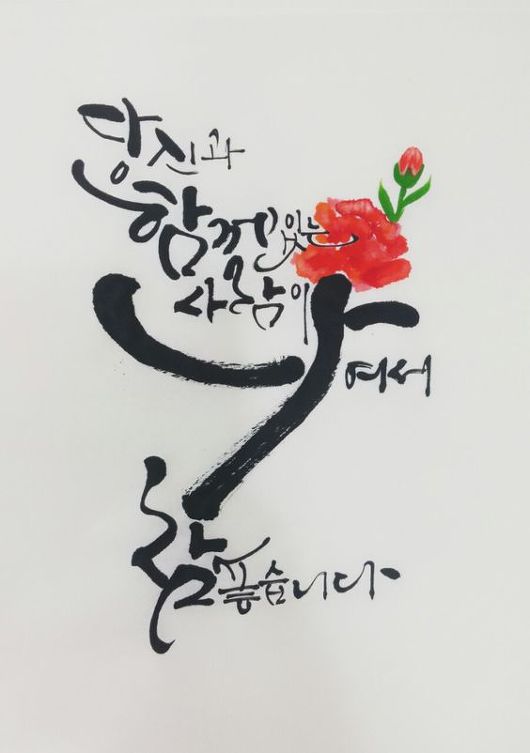 당신과
함께있는
사람이
나여서
참좋습니다.